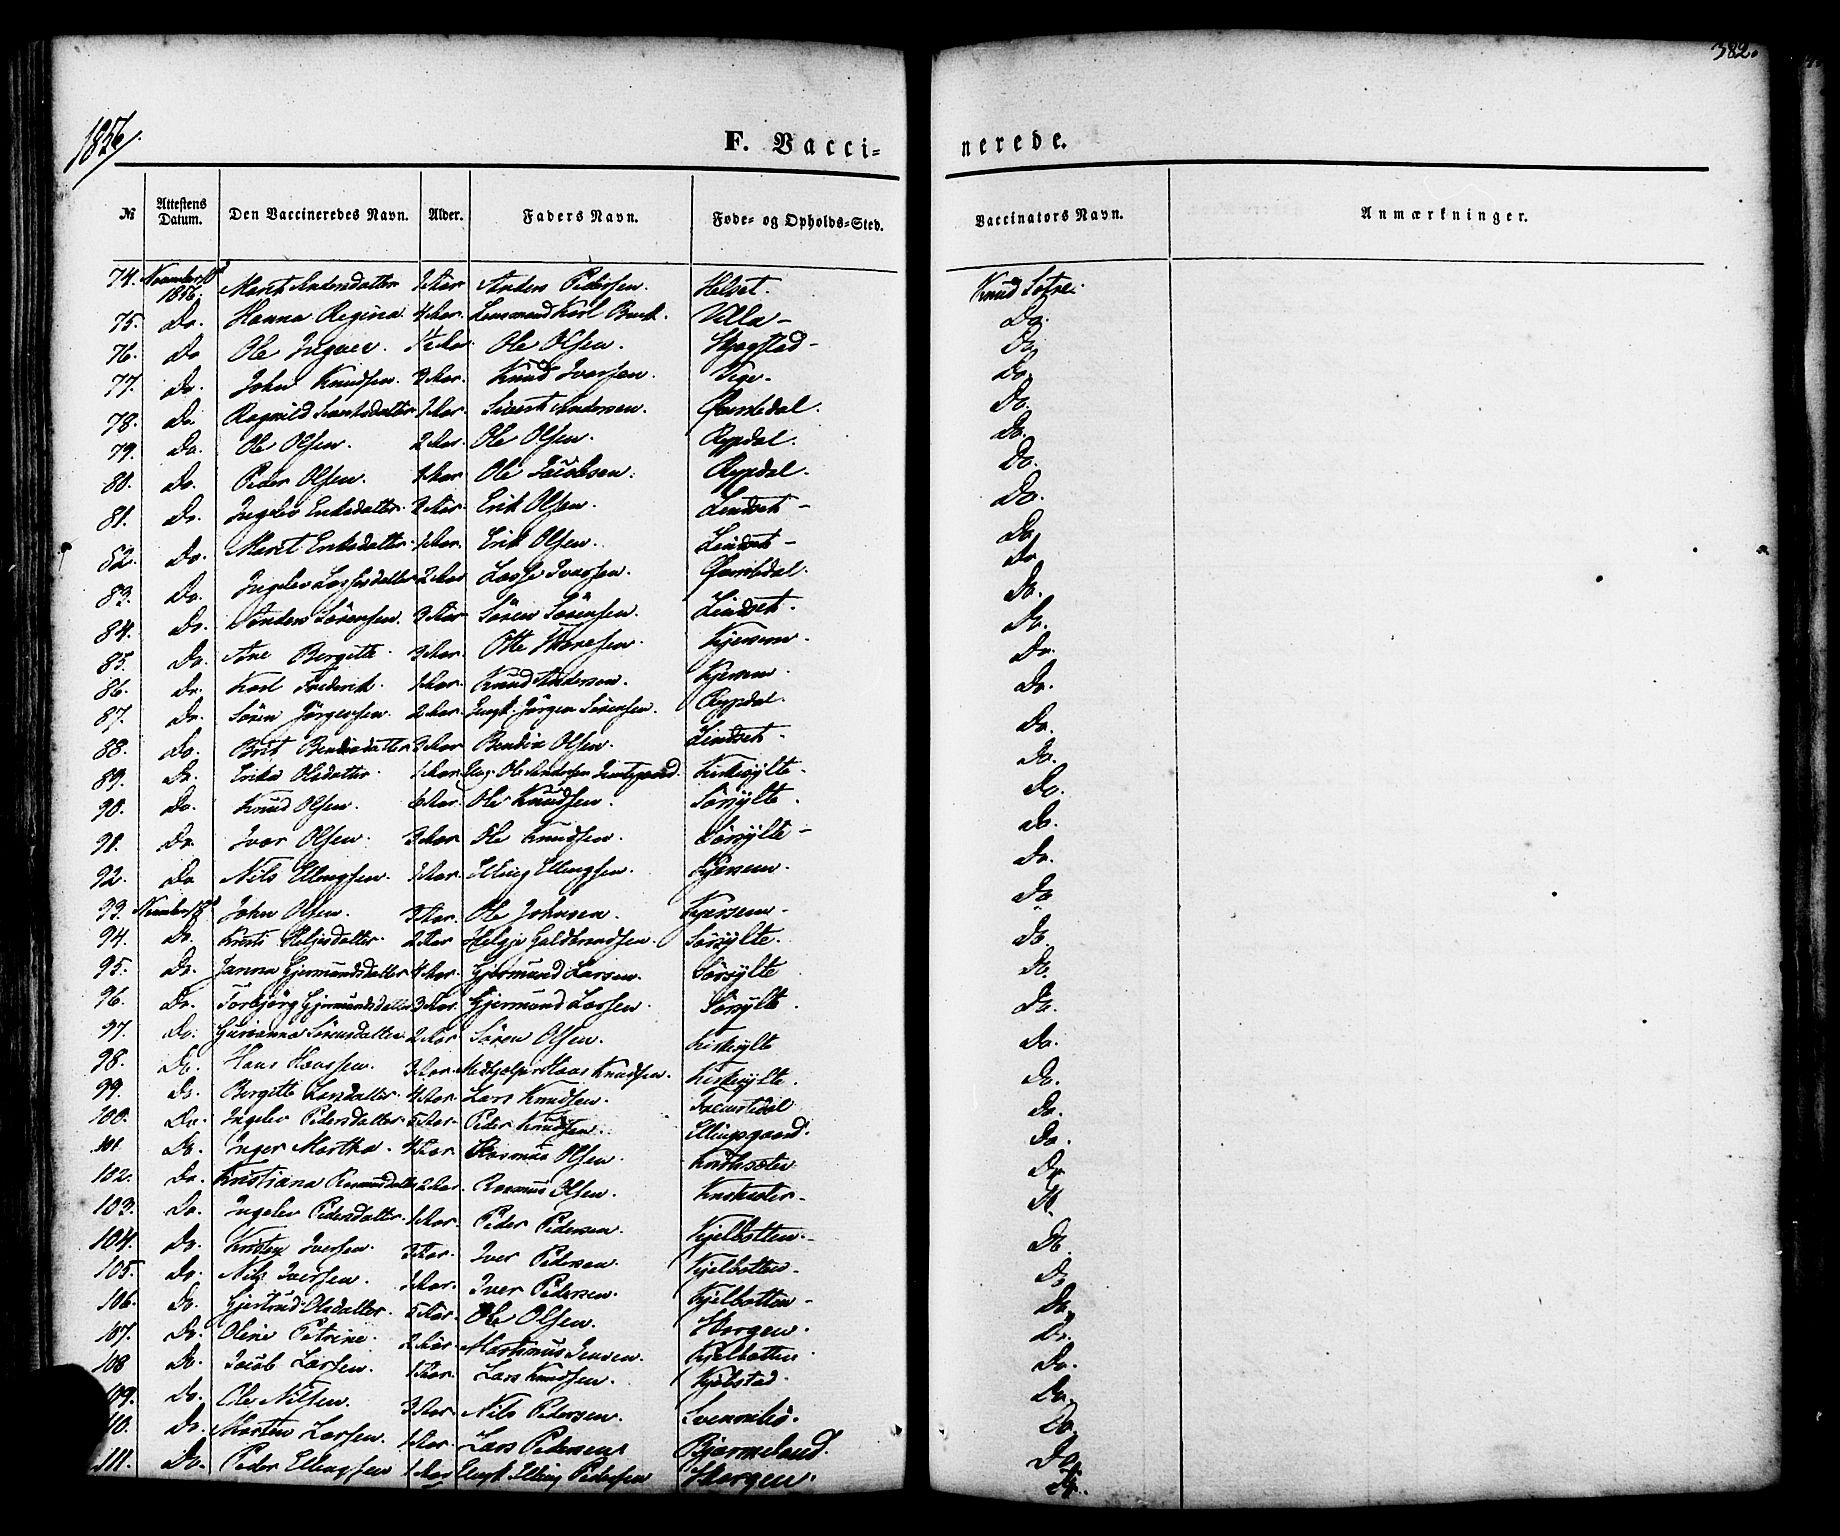 382.
1856.
F. Vaccinerede.
№ Attestens Datum. Den Vaccineredes Navn. Alder. Faders Navn. Føde- og Opholds-Sted. Vaccinators Navn. Anmærkninger.
74. November 1856. Marit Andersdatter Anders Pedersen. Helset. Knud Sætre.
75. Do. Hanna Regina 4 Aar. Lensmand Karl Villa - Do.
76. Do Ole 1½ Aar. Ole Olsen. Skjegstad - Do.
77. Do. John Knudsen. 3 Aar. Knud Iversen. Vige. Do.
78. Do. Ragnild Sivertsdatter 1 Aar. Sivert Andersen. Do.
79. Do. Ole Olsen. 2 Aar. Ole Olsen. Rypdal. Do.
80. Do. Peder Olsen. 1 Aar. Ole Jacobsen. Rypdal. Do.
81. Do. Ingelev Eriksdatter. 3 Aar. Erik Olsen. Lindset - Do.
82. Do. Marit Eriksdatter. 1 Aar. Erik Olsen. Lindset - Do
83. Do. Ingelev Lassesdatter 2 Aar Lasse Iversen. Do
84. Do. Anders Sørensen. 3 Aar Søren Sørensen. Lindset. Do.
85. Do. Ane Bergitte. 3 Aar. Otte Kjersem. Do.
86. Do. Karl Frederik. 1 Aar. Knud Andersen. Kjersem. Do.
87. Do. Søren Jørgensen. 2 Aar. Jørgen Sørensen. Rypdal. Do.
88. Do. Brit Bendixdatter 3 Aar Bendix Olsen. Lindset - Do.
89. Do. Erika Olsdatter. 1 Aar. Ole Andersen Kirksylte. Do.
90. Do. Knud Olsen. 6 Aar. Ole Knudsen. Sørsylte. Do.
91. Do. Iver Olsen. 3 Aar. Ole Knudsen. Sørsylte - Do.
92. Do Nils Ellingsen. 1 Aar. Elling Ellingsen. Kjersem. Do.
93. November John Olsen. 3 Aar. Ole Johnsen. Kjersem - Do
94. Do. Kirsti Helgesdatter. 2 Aar Helge Guldbrandsen. Sørsylte. Do.
95. Do. Janna Gjermundsdatter 4 Aar. Gjermund Larsen. Sørsylte Do.
96. Do. Torbjørg Gjermundsdatter 3 Aar. Gjermund Larsen. Sørsylte. Do.
97. Do. Gurianna Sørensdatter 2 Aar Søren Olsen. Kirksylte Do.
98. Do. Hans Hanssen. 3 Aar. Medhjelper Hans Knudsen. Kirksylte. Do.
99. Do. Bergitte Larsdatter. 4 Aar. Lars Knudsen. Do.
100. Do. Ingelev Pedersdatter 5 Aar. Peder Knudsen. Ellingsgaard. Do.
101. Do. Inger Martha. 4 Aar Rasmus Olsen. Do
102. Do. Kristiana Rasmusdatter 2 Aar. Rasmus Olsen. Do.
103. Do. Ingelev Pedersdatter. 1 Aar. Peder Pedersen. Kjelbotten - Do.
104. Do. Kristen Iversen. 3 Aar. Iver Pedersen. Kjelbotten - Do.
105. Do. Nils Iversen. 1 Aar. Iver Pedersen. Kjelbotten - Do.
106. Do. Gjertrud Olsdatter. 5 Aar. Ole Olsen. Horgen. Do.
107. Do. Oline Petrine. 2 Aar. Martinus Jensen. Kjelbotten Do.
108 Do. Jacob Larsen. 1 Aar. Lars Knudsen. Kjelstad. Do.
109. Do. Ole Nilsen. 3 Aar. Nils Pedersen. Svenneløs. Do.
110. Do. Morten Larsen. 1 Aar. Lars Pedersen. Bjermeland. Do.
111. Do. Peder Ellingsen 1 Aar Elling Pedersen Horgen. Do.